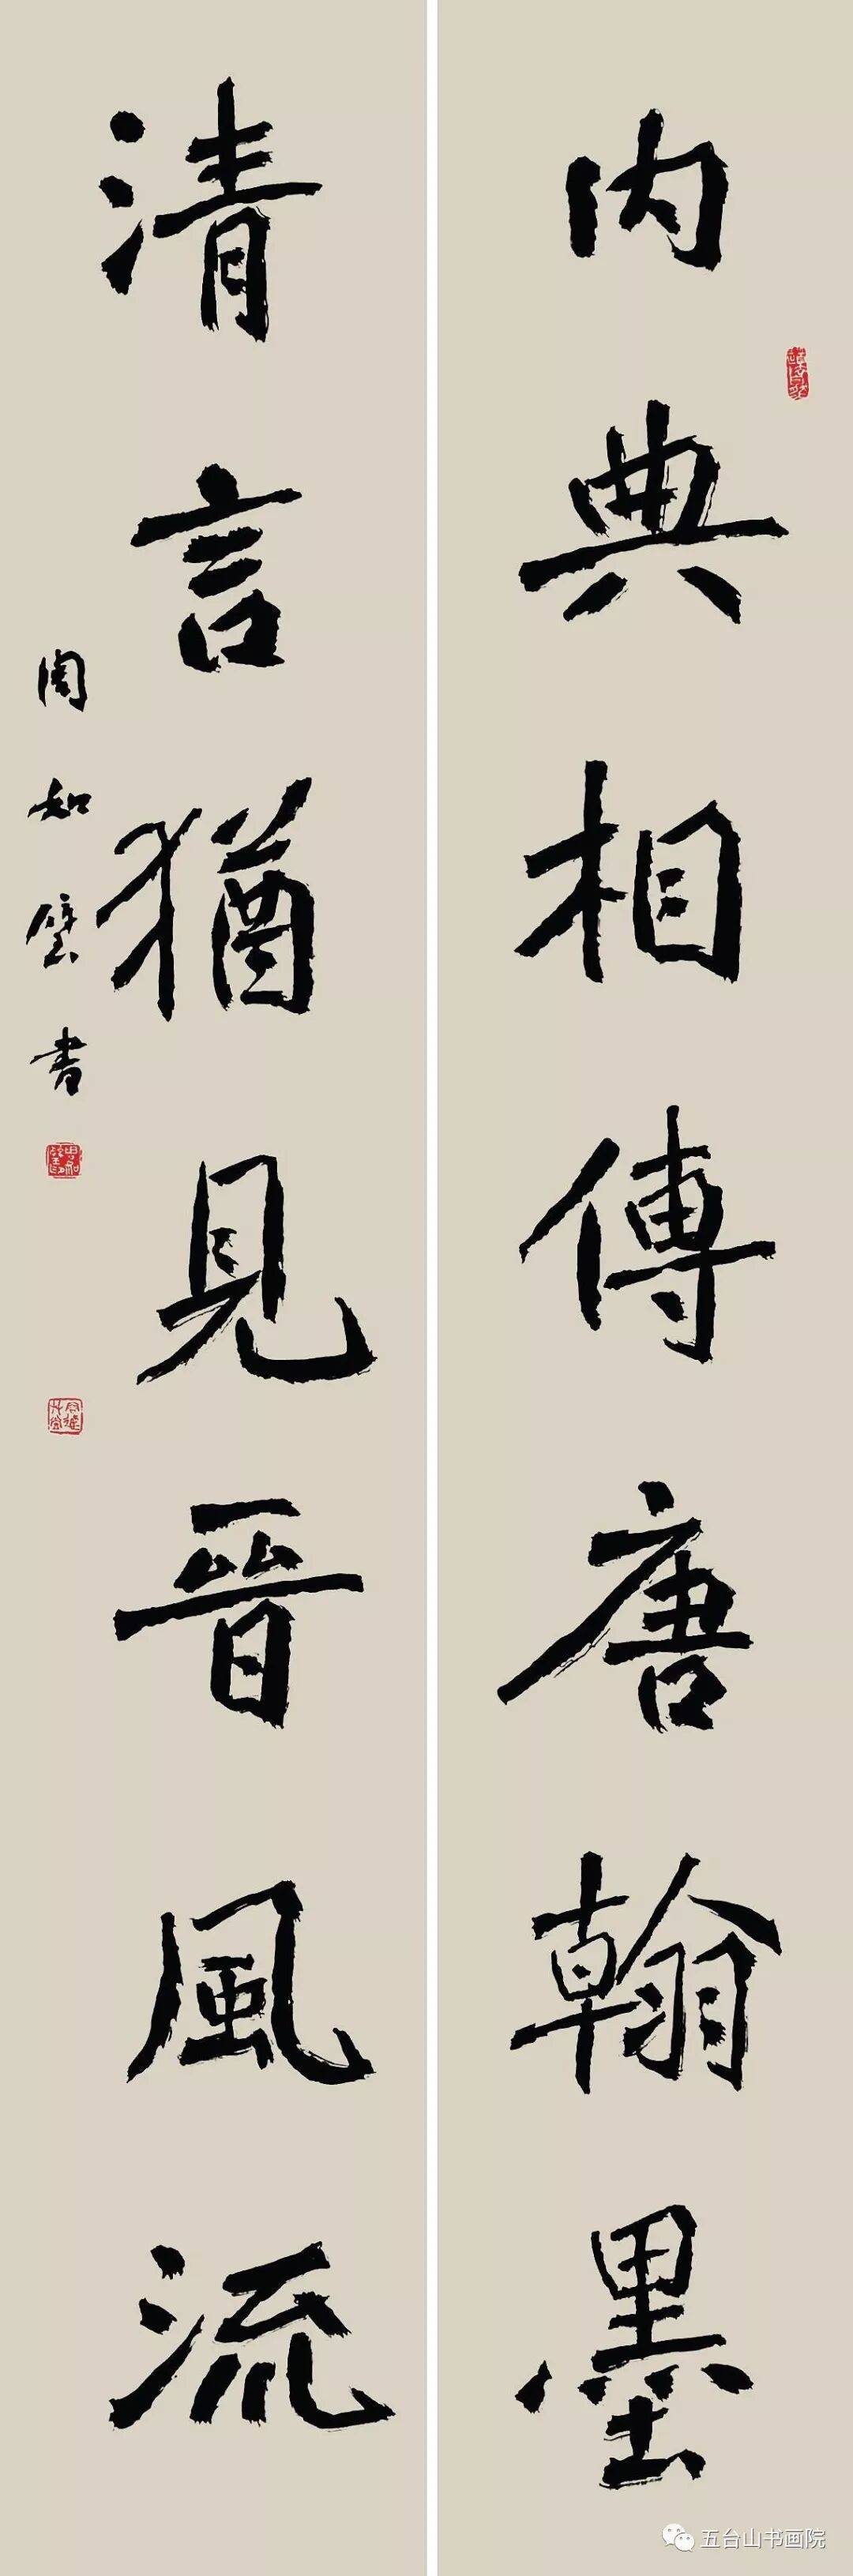 内典相傳唐翰墨
清言猶見晉風流
周知堂書
五台山书画院